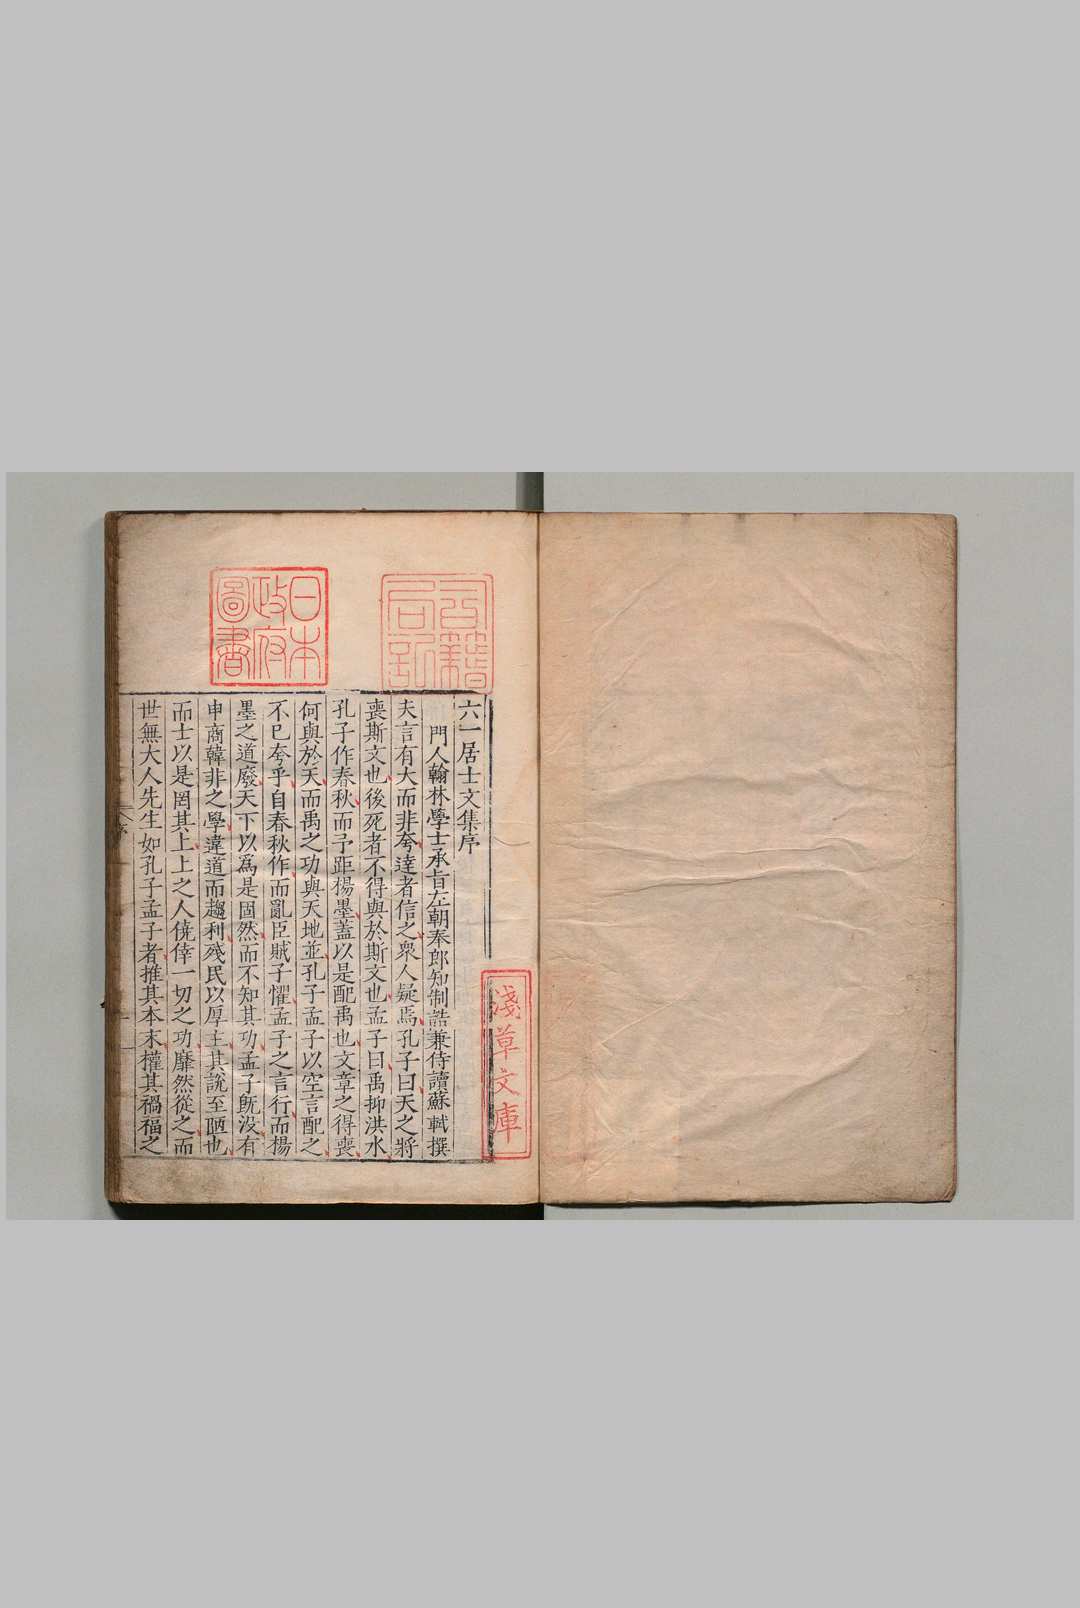 六一居士文集序
門人翰林學士承旨左朝奉郎知制誥兼侍讀蘇軾撰
夫言有大而非夸達者信之衆人疑焉孔子曰天之將
喪斯文也後死者不得與於斯文也孟子曰禹抑洪水
孔子作春秋而予距楊墨蓋以是配禹也文章之得喪
何與於天而禹之功與天地並孔子孟子以空言配之
不已夸乎自春秋作而亂臣賊子懼孟子之言行而楊
墨之道廢天下以爲是固然而不知其功孟子旣没有
申商韓非之學違道而趨利殘民以厚主其說至陋也
而士以是罔其上上之人僥倖一切之功靡然從之而
世無大人先生如孔子孟子者推其本末權其禍福之
序
日本
政府
圖書
淺草文庫